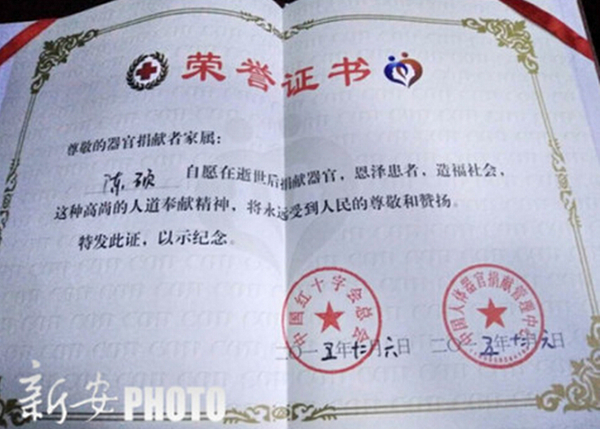 荣誉证书
尊敬的器官捐献者家属:
陈硕 自愿在逝世后捐献器官，恩泽患者，造福社会，
这种高尚的人道奉献精神，将永远受到人民的尊敬和赞扬。
特发此证，以示纪念。
中国红十字会总会
中国人体器官捐献管理中心
二〇一五年十二月六日 二〇一五年十二月六日
新安PHOTO